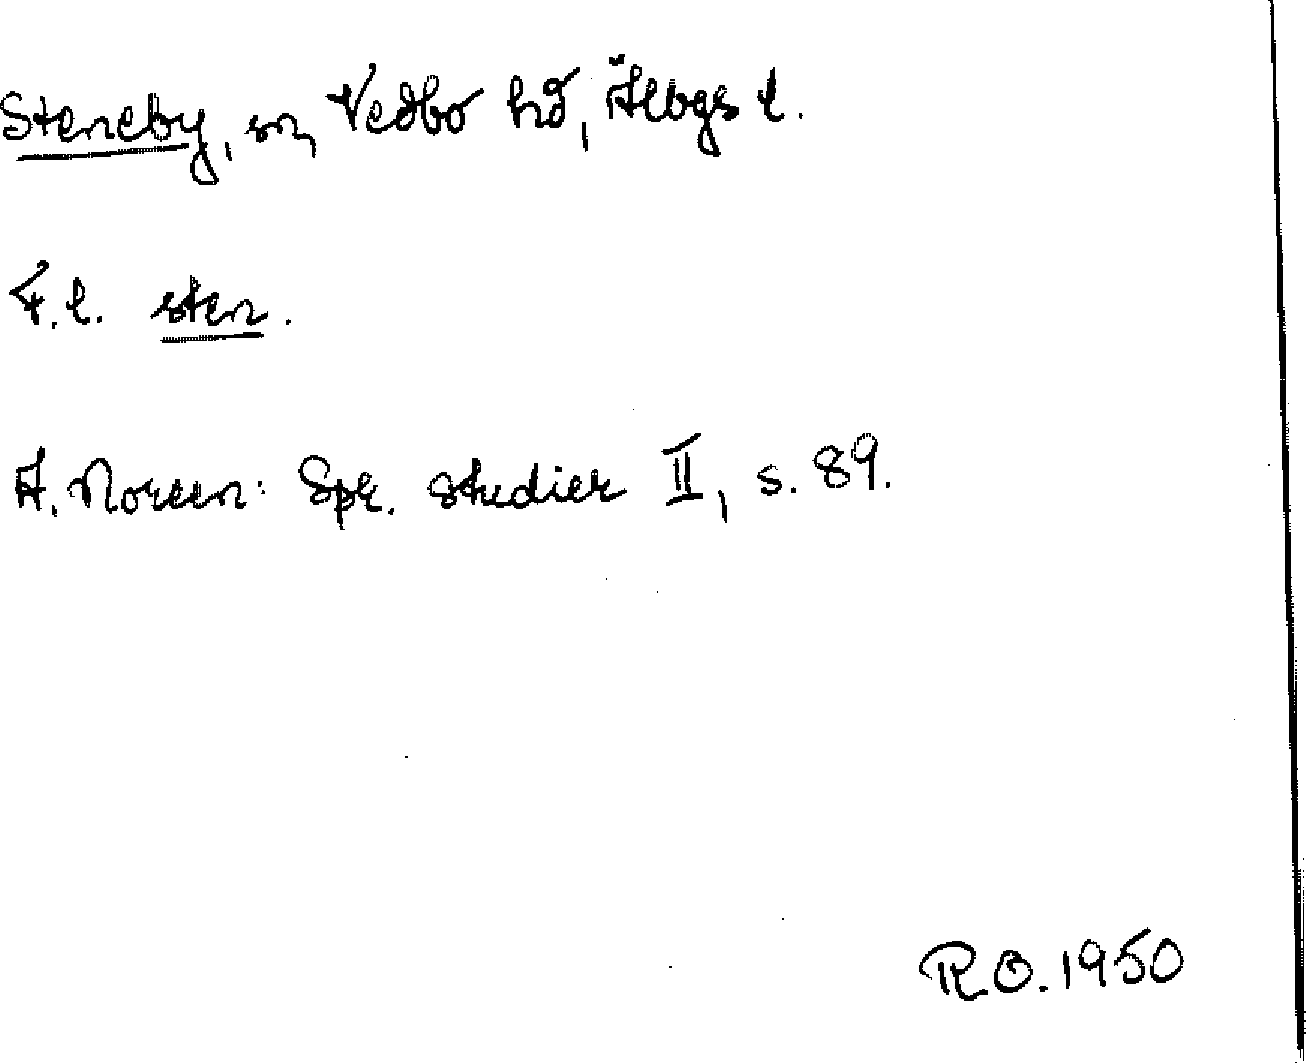 Steneby, sn, Vedbo hd, Älvbgs l.
F.l. sten.
A. Noreen: Spr. studier II, s. 89.
R.O. 1950